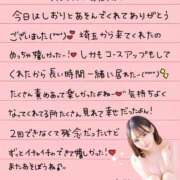 今日はしおりとあそんでくれてありがとう
ございました(****) 埼玉から来てくれたの
めっちゃ嬉しかった~! しかもコースアップもして
くれたから長い時間一緒に居れた~(****)
たくさん責めあって楽しかったよね~♥ 気持ちよく
なってくれてる所たくさん見れて幸せだったよん!
2回できなくて残念だったけど
ずっとイチャイチャのできて嬉しかった!
またあそぼうねぇ♡